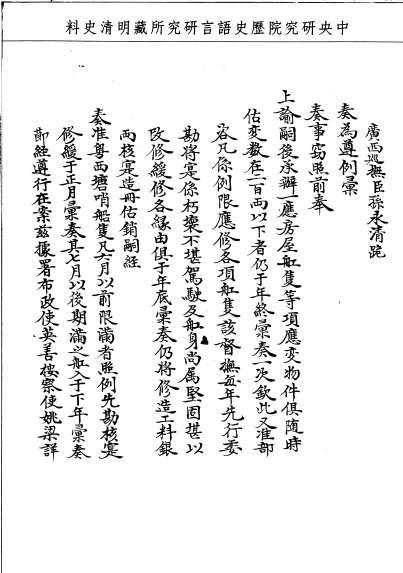 中央研究院歷史語言研究所藏明清史料
廣西巡撫臣孫永清跪
奏為遵例彙
奏事竊照前奉
上諭嗣後承辦一應房屋舡隻等項應变物件俱随時
估変数在二百両以下者仍于年終彙奏一次欽此又准部
咨凡係例限應修各項舡隻該督撫每年先行委
勘將寔係朽壞不堪駕駛及舡身尚属堅固堪以
改修緩修各緣由俱于年底彙奏仍將修造工料銀
両核寔造冊估銷嗣經
奏准粤西塘哨船隻凡六月以前限滿者照例先勘核寔
修緩于正月彙奏其七月以後期滿之舡入于下年彙奏
節經遵行在案兹據署布政使英善按察使姚梁詳